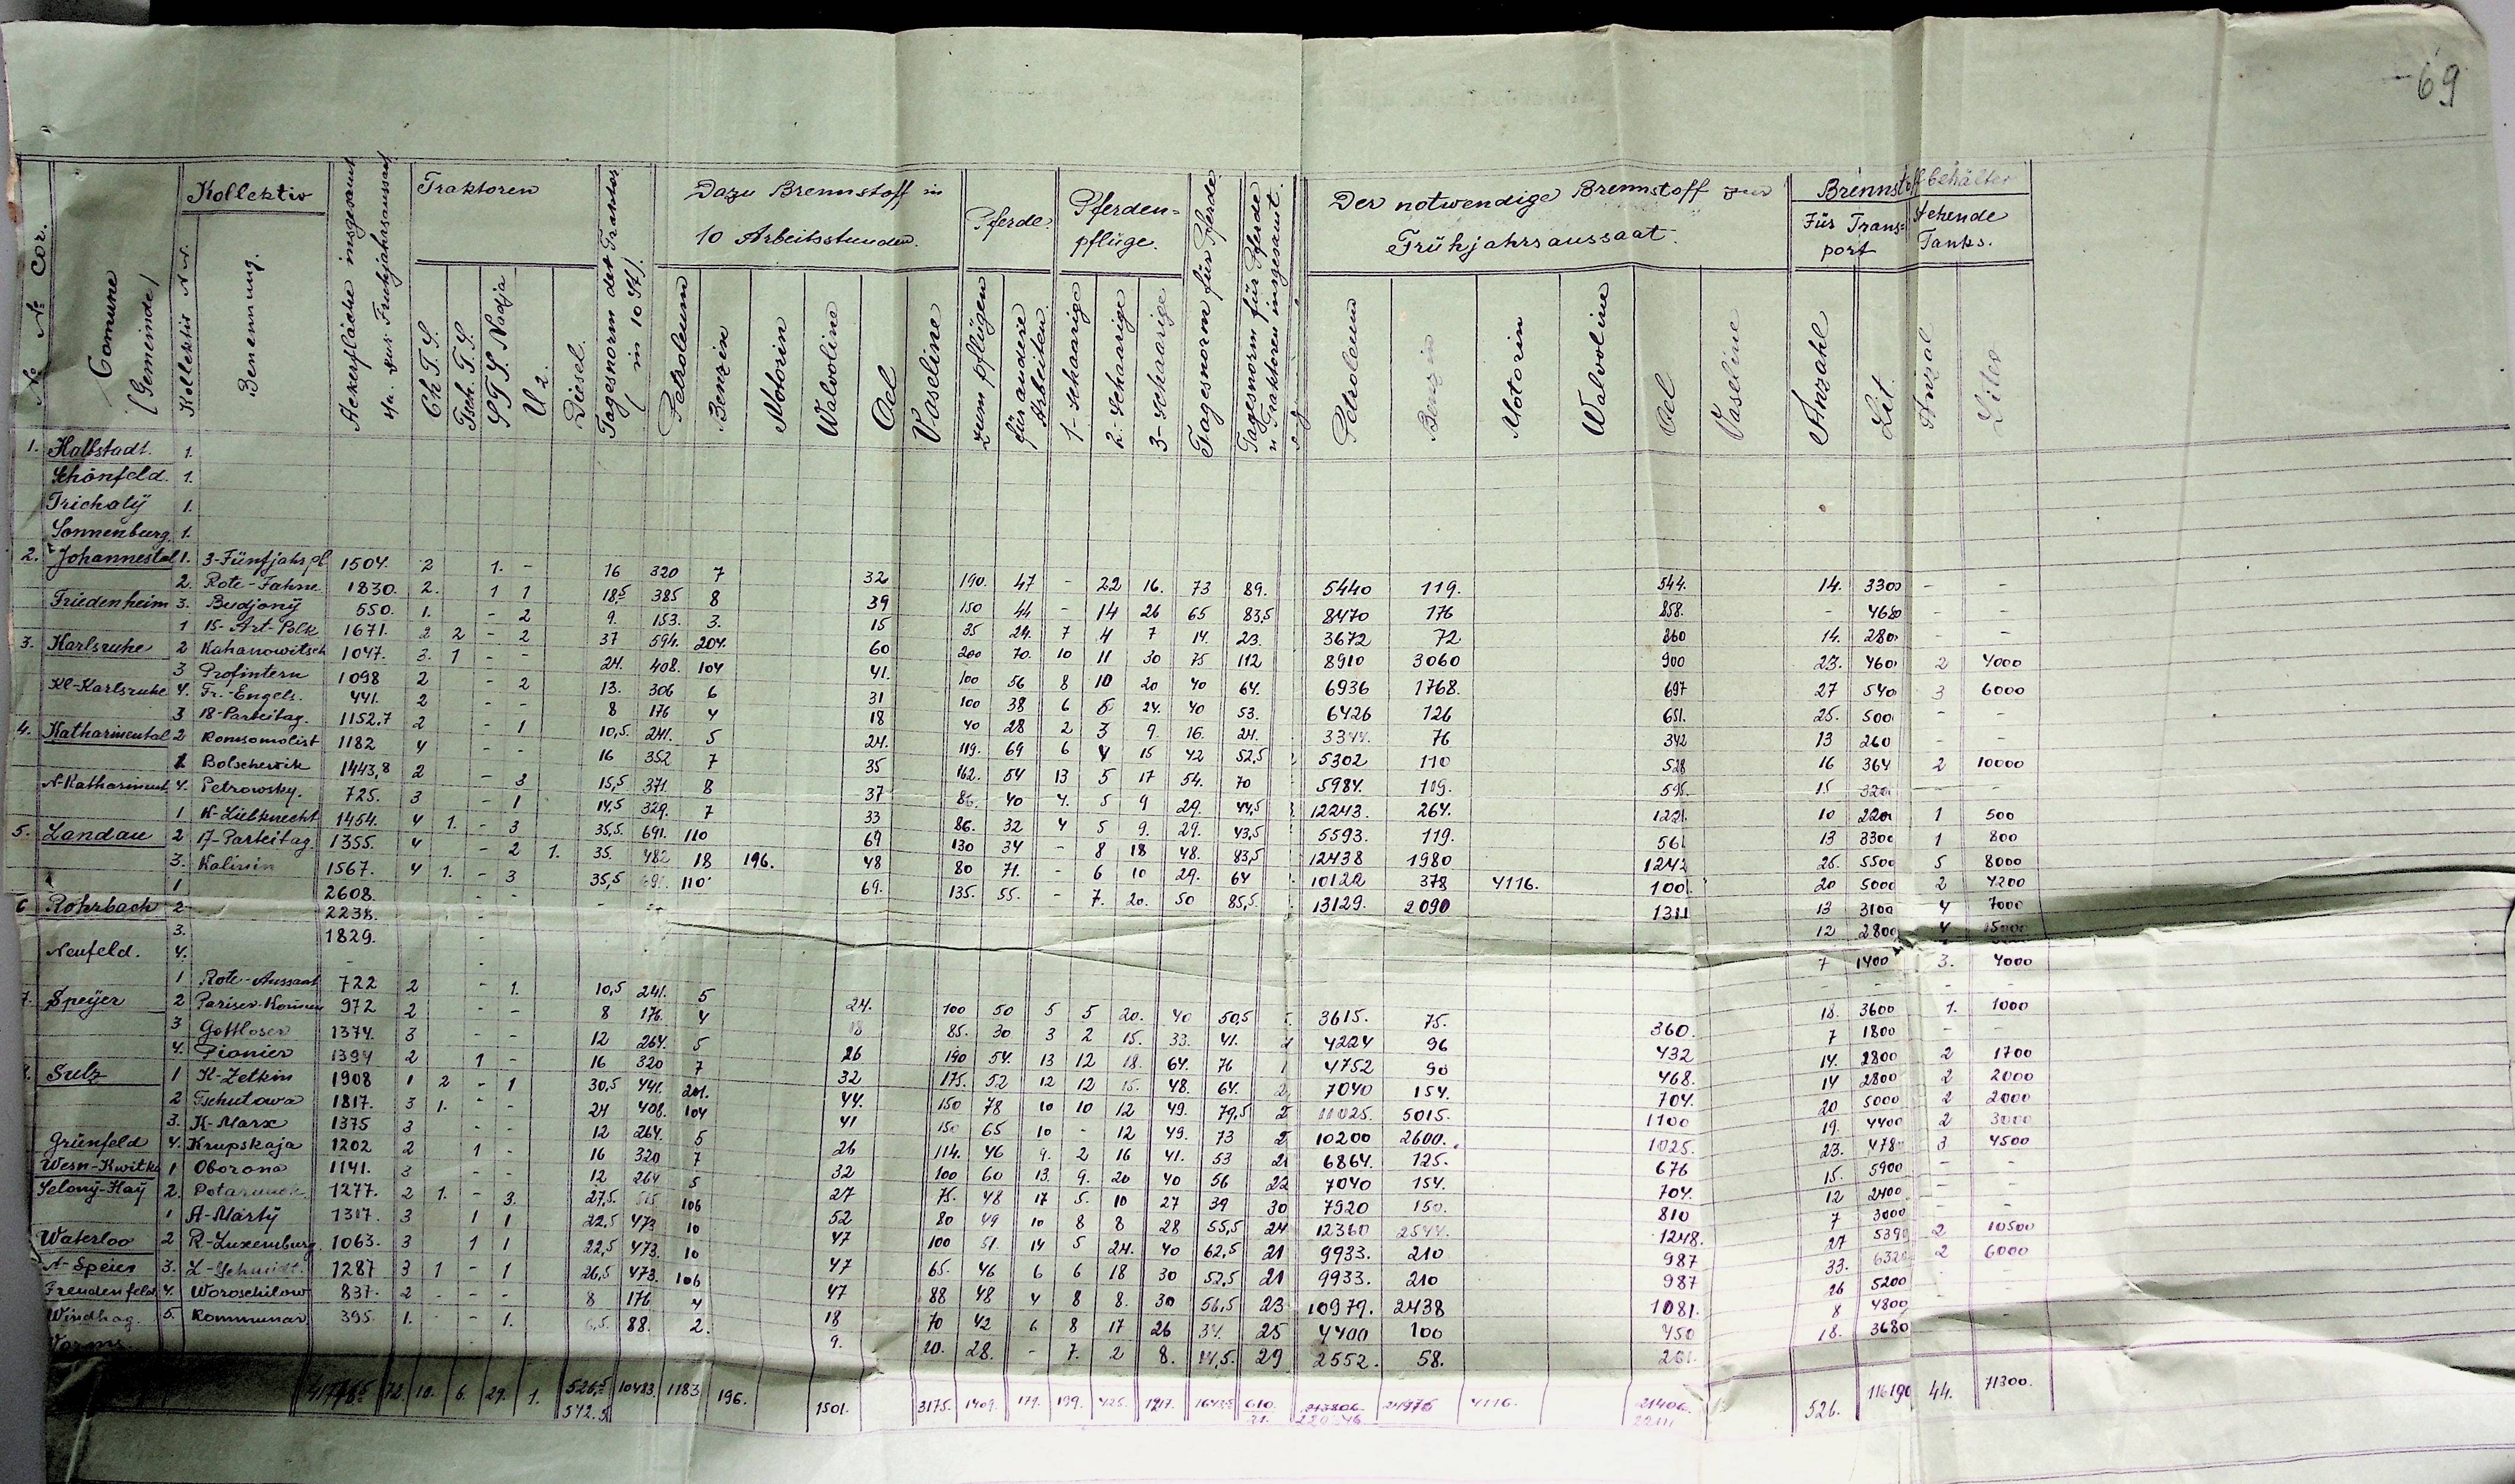 69
Kollektiv Traktoren Dazu Brennstoff in 10 Arbeitsstunden. Pferde. Pferden=pflüge. Der notwendige Brennstoff zur Frühjahrsaussaat. Brennstoffbehälter
Für Trans=port stehende Tanks.
№ № Cor. Comune (Gemeinde) Kollektiv Nr. Benennung. Ackerfläche insgesamt Ha. zur Frühjahrsaussaat Ch T. S. Tsch. T. S. S T S. Nadja U 2. Diesel. Tagesnorm der Traktor (in 10 St.) Petroleum Benzin Motorin Walvoline Oel Vaseline zum pflügen für andere Arbeiten. 1-schaarige 2-schaarige 3-schaarige Tagesnorm für Pferde Tagesnorm für Pferde u Traktoren insgesamt. Petroleum Benzin Motorin Walvoline Oel Vaseline Anzahl Lit. Anzal Liter
1. Halbstadt. 1.
Schönfeld. 1.
Trichaty 1.
Sonnenburg. 1.
2. Johannestal 1. 3-Fünfjahrpl 1504. 2 1. - 16 320 7 32 190. 47 - 22 16. 73 89. 5440 119. 544. 14. 3300 - -
2. Rote-Fahne 1830. 2. 1 1 18,5 385 8 39 150 44 - 14 26 65 83,5 8470 176 858. - 4680 - -
Friedenheim 3. Budjony 550. 1. - 2 9. 153. 3. 15 35 24. 7 4 7 14. 23. 3672 72 14. 2800 - -
1 15-Art-Polk 1671. 2 2 - 2 37 594. 204. 60 200 70. 10 11 30 75 112 8910 3060 900 23. 4600 2 4000
3. Karlsruhe 2 Kahanowitsch 1047. 3. 1 - - 24. 408. 104 41. 100 56 8 10 20 40 64. 6936 1768. 697 27 5400 3 6000
3 Profintern 1098 2 - 2 13. 306 6 31 100 38 6 24. 40 53. 6426 126 651. 25. 5000 - -
Kl-Karlsruhe 4. Fr.-Engels. 441. 2 - - 8 176 4 18 40 28 2 3 9. 16. 24. 3344. 76 342 13 260 - -
3 18-Parteitag. 1152,7 2 - 1 10,5. 241. 5 24. 119. 69 6 4 15 42 52,5 5302 110 528 16 364 2 10000
4. Katharinental 2 Komsomolist 1182 4 - - 16 352 7 35 162. 54 13 5 17 54. 70 5984. 119. 595. 15 320 - -
Bolschewik 1443,8 2 - 3 15,5 371. 8 37 86. 40 4. 5 9 29. 44,5 12243. 264. 1221. 10 220 1 500
N-Katharinent. 4. Petrowsky. 725. 3 - 1 14,5 329. 7 33 86. 32 4 5 9. 29. 43,5 5593. 119. 561 13 3300 1 800
1 K-Liebknecht 1454. 4 1. - 3 35,5. 691. 110 69 130 34 - 8 18 48. 83,5 12438 1980 1242 25. 5500 5 8000
5. Landau 2 17-Parteitag. 1355. 4 - 2 1. 35. 482 18 196. 48 80 71. - 6 10 29. 64 10122 378 4116. 20 5000 2 4200
3. Kalinin 1567. 4 1. - 3 35,5 691. 110 69. 135. 55. - 7. 20. 50 85,5. 13129. 2090 1311 13 3100 4 7000
1 2608. 12 2800 4 15000
6 Rohrbach 2 2238. 7 1400 3. 4000
3. 1829.
Neufeld. 4.
1 Rote-Aussaat 722 2 - 1. 10,5 241. 5 24. 100 50 5 5 20. 40 50,5 3615. 75. 360. 18. 3600 1. 1000
7. Speyer 2 Pariser-Komun 972 2 - - 8 176. 4 18 85. 30 3 2 15. 33. 41. 4224 96 432 7 1800 - -
3 Gottloser 1374. 3 - - 12 264. 5 26 190 54. 13 12 18. 64. 76 4752 90 468. 14. 2800 2 1700
4. Pionier 1394 2 1 - 16 320 7 32 175. 52 12 12 15. 48. 64. 7040 154. 704. 14 2800 2 2000
8. Sulz 1 K-Zetkin 1908 1 2 - 1 30,5 441. 201. 44. 150 78 10 10 12 49. 79,5 11025. 5015. 1100 20 5000 2 2000
2 Tschutowa 1817. 3 1. - - 24 408. 104 41 150 65 10 - 12 49. 73 10200 2600. 1025. 19. 4400 2 3000
3. K-Marx 1375 3 - - 12 264. 5 26 114. 46 9. 2 16 41. 53 6864. 125. 676 23. 478 3 4500
Grünfeld 4. Krupskaja 1202 2 1 - 16 320 7 32 100 60 13. 9. 20 40 56 22 7040 154. 704. 15. 5900 - -
Wesn-Kwitka 1 Oborona 1141. 3 - - 12 264 5 27 75. 48 17 5. 10 27 39 30 7920 150. 810 12 2400 - -
Selony-Hay 2. 1277. 2 1. - 3. 27,5. 106 52 80 49 10 8 8 28 55,5 24 12360 2544. 1248. 7 3000
1 A-Marty 1317. 3 1 1 22,5 473 10 47 100 51. 14 5 24. 40 62,5 21 9933. 210 987 27 5390 2 10500
Waterloo 2 R-Luxemburg. 1063. 3 1 1 22,5 473. 10 47 65. 46 6 6 18 30 52,5 21 9933. 210 987 33. 6320 2 6000
N-Speier 3. L-Schmidt. 1287 3 1 - 1 26,5 473. 106 47 88 48 4 8 8. 30 56,5 23 10979. 2438 1081. 26 5200
Freudenfeld 4. Woroschilow 837. 2 - - - 8 176 4 18 70 42 6 8 17 26 34. 25 4400 100 450 8 4800
Windhag. 5. Kommunar 395. 1. - - 1. 88. 2. 9. 20. 28. - 7. 2 8. 14,5. 29 2552. 58. 261. 18. 3680
Worms.
72. 10. 6. 29. 1. 526,5 10483. 1183 196. 1501. 3175. 1409. 171. 199. 425. 1217. 610. 24976 4116. 21406. 526. 116190 44. 71300.
542.5